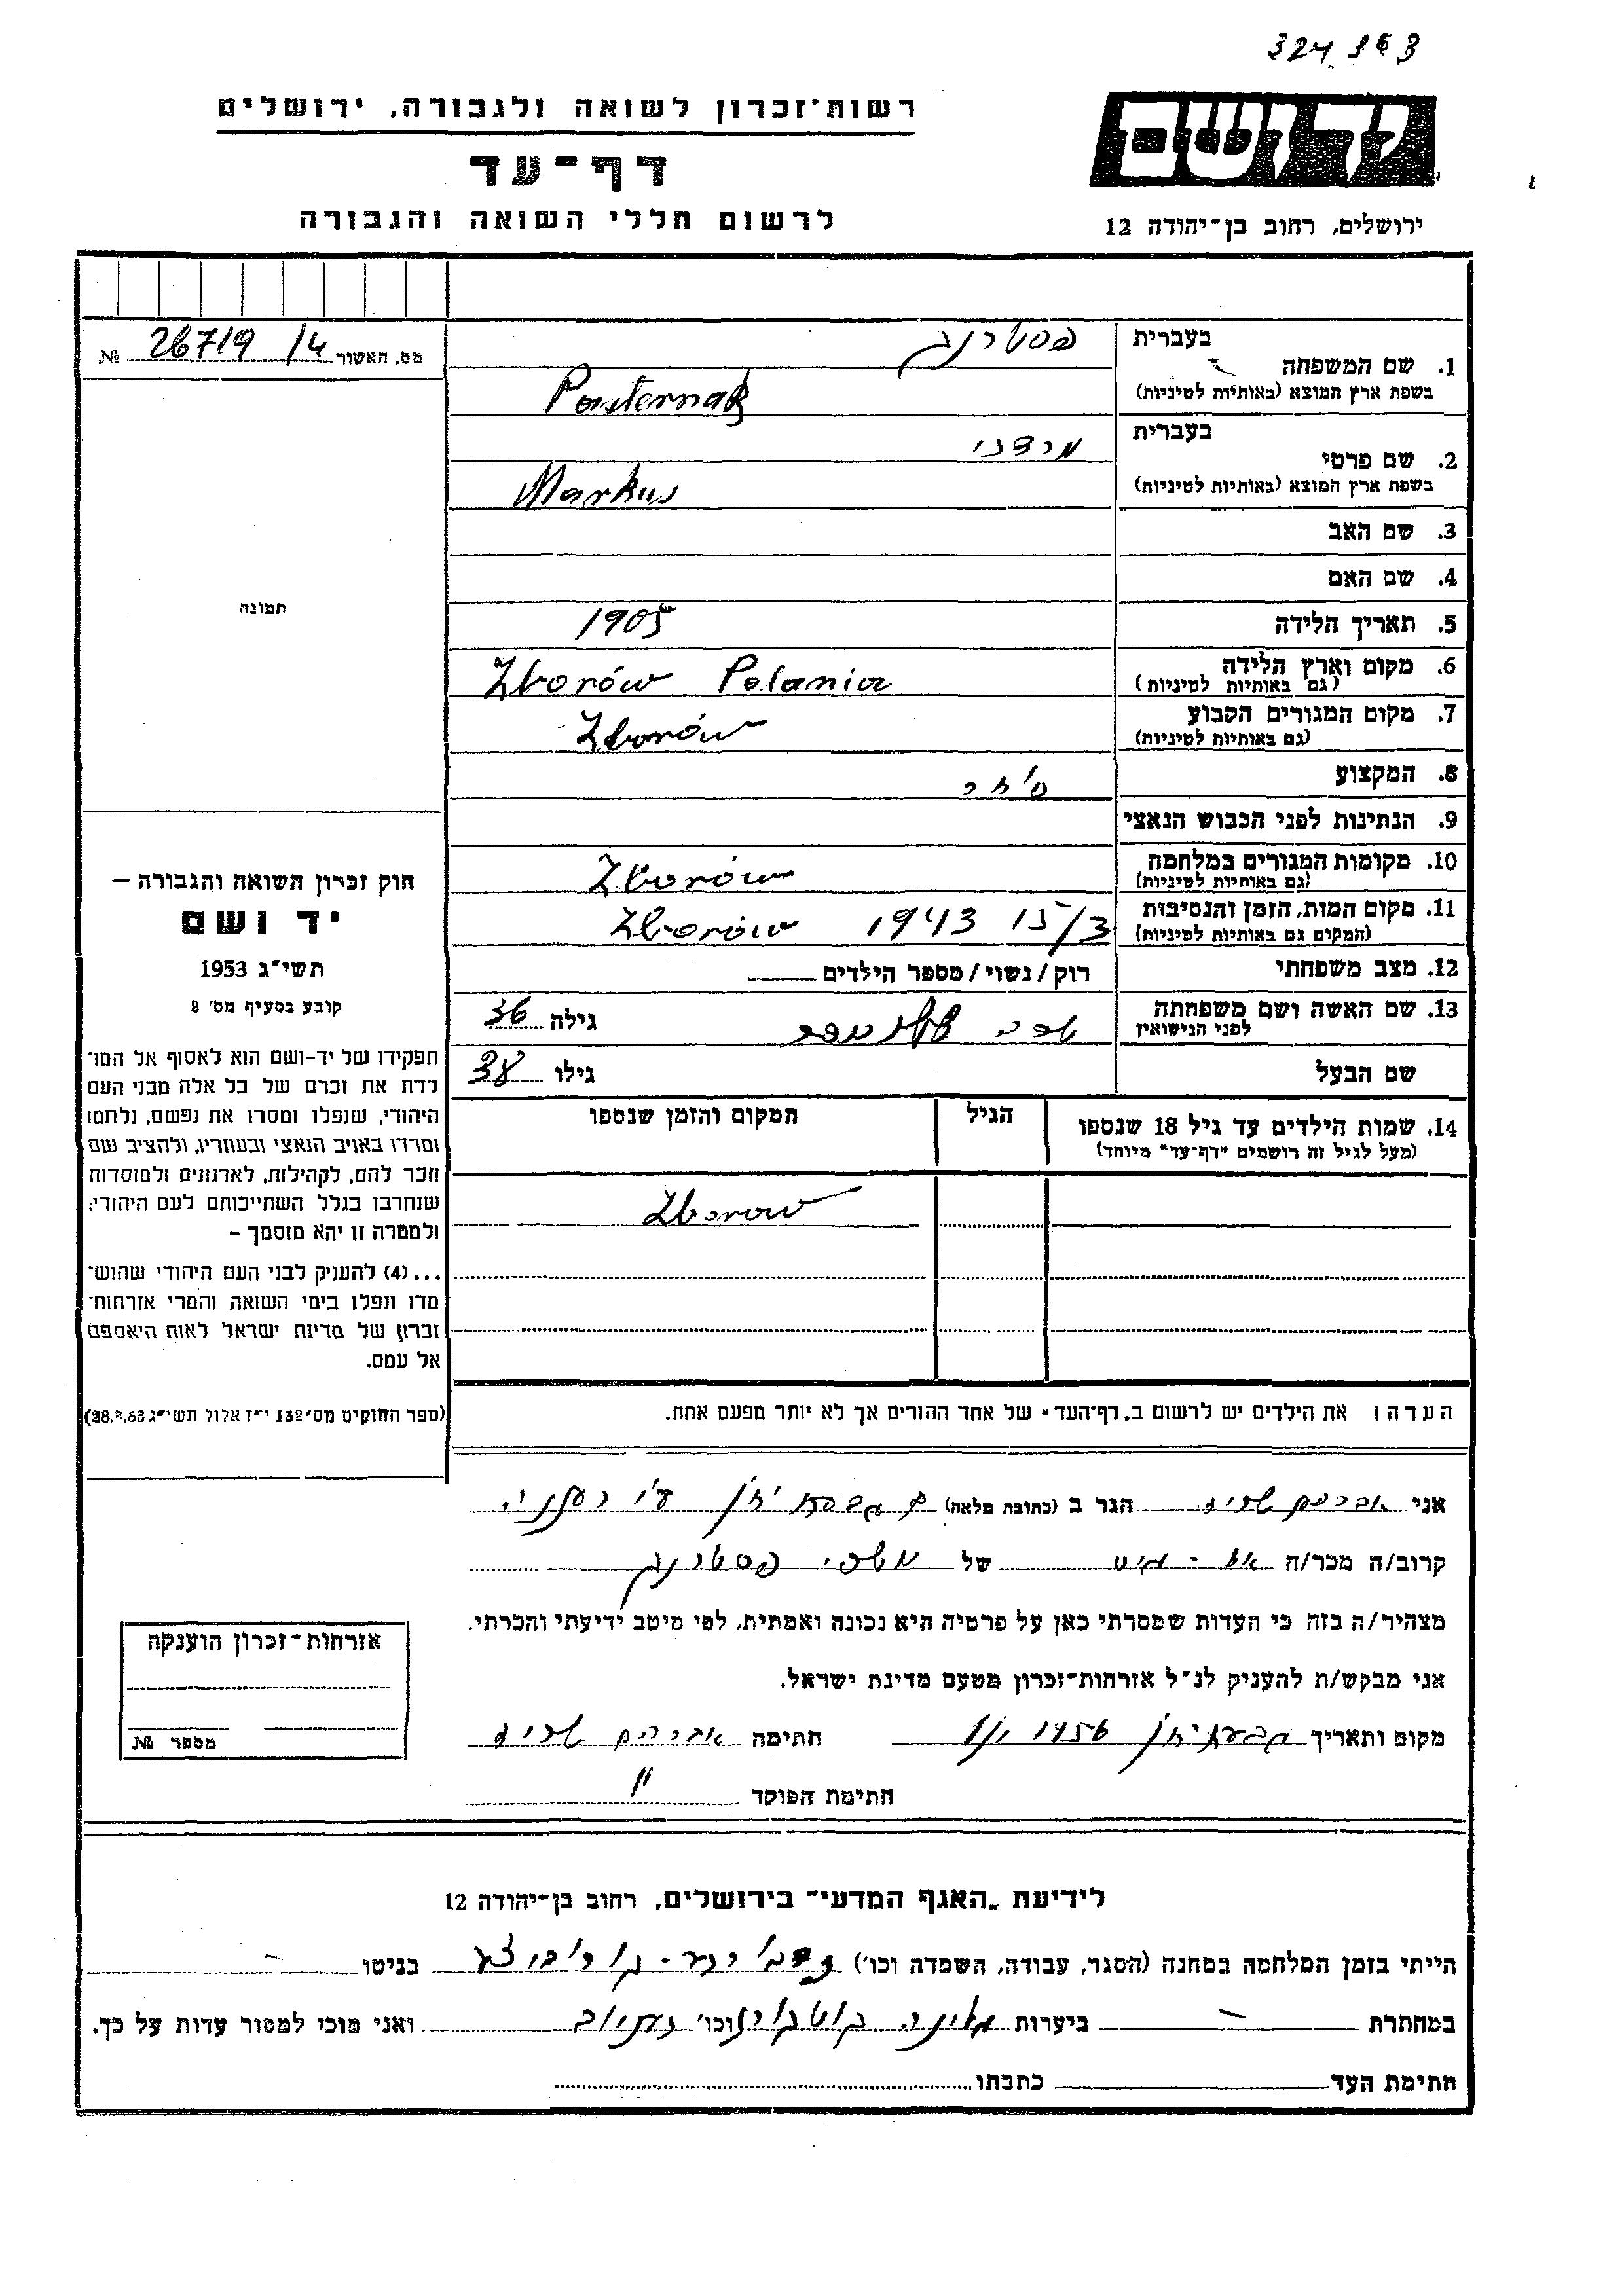 324 363
רשות־זכרון לשואה ולגבורה, ירושלים
יד ושם
דף־עד
לרשום חללי השואה והגבורה
ירושלים, רחוב בן־יהודה 12
מס. האשור 26719/4 №
תמונה
1. שם המשפחה
בעברית פסטרנק
בשפת ארץ המוצא (באותיות לטיניות) Pasternak
2. שם פרטי
בעברית מרדכי
בשפת ארץ המוצא (באותיות לטיניות) Markus
3. שם האב
4. שם האם
5. תאריך הלידה 1905
6. מקום וארץ הלידה Zborów Polania
(גם באותיות לטיניות)
7. מקום המגורים הקבוע Zborów
(גם באותיות לטיניות)
8. המקצוע סוחר
9. הנתינות לפני הכבוש הנאצי
10. מקומות המגורים במלחמה Zborów
(גם באותיות לטיניות)
11. מקום המות, הזמן והנסיבות Zborów 1943 15/3
(המקום גם באותיות לטיניות)
12. מצב משפחתי רוק/נשוי/מספר הילדים
13. שם האשה ושם משפחתה גילה 36
לפני הנישואין
שם הבעל גילו 38
14. שמות הילדים עד גיל 18 שנספו הגיל המקום והזמן שנספו
(מעל לגיל זה רושמים "דף־עד" מיוחד)
Zborow
הערה: את הילדים יש לרשום ב"דף־העד" של אחד ההורים אך לא יותר מפעם אחת.
חוק זכרון השואה והגבורה –
יד ושם
תשי"ג 1953
קובע בסעיף מס' 2
תפקידו של יד-ושם הוא לאסוף אל המו־
לדת את זכרם של כל אלה מבני העם
היהודי, שנפלו ומסרו את נפשם, נלחמו
ומרדו באויב הנאצי ובעוזריו, ולהציב שם
וזכר להם, לקהילות, לארגונים ולמוסדות
שנחרבו בגלל השתייכותם לעם היהודי;
ולמטרה זו יהא מוסמך –
...(4) להעניק לבני העם היהודי שהוש־
מדו ונפלו בימי השואה והמרי אזרחות־
זכרון של מדינת ישראל לאות היאספם
אל עמם.
(ספר החוקים מס' 132 י"ז אלול תשי"ג 28.8.53)
אני אברהם הגר ב (כתובת מלאה) גבעת חן ע"י רעננה
קרוב/ה מכר/ה של פסטרנק
מצהיר/ה בזה כי העדות שמסרתי כאן על פרטיה היא נכונה ואמתית, לפי מיטב ידיעתי והכרתי.
אני מבקש/ת להעניק לנ"ל אזרחות־זכרון מטעם מדינת ישראל.
מקום ותאריך גבעת חן 1956 חתימה אברהם
חתימת הפוקד "
אזרחות־זכרון הוענקה
מספר №
לידיעת "האגף המדעי" בירושלים, רחוב בן־יהודה 12
הייתי בזמן המלחמה במחנה (הסגר, עבודה, השמדה וכו') בגיטו –
במחתרת – ביערות וכו' ואני מוכן למסור עדות על כך.
חתימת העד כתבתו